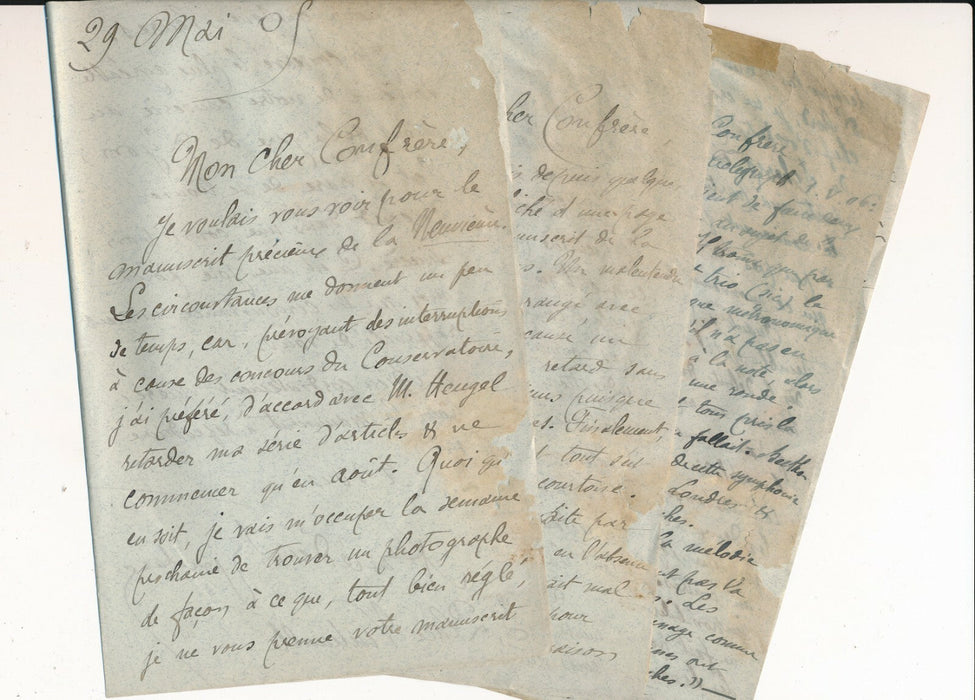 29 Mai 05
Mon cher Confrère,
Je voulais vous voir pour le
manuscrit précieux de la Neuvième.
Les circonstances me donnent un peu
de temps, car, prévoyant des interruptions
à cause des concours du Conservatoire,
j'ai préféré, d'accord avec M. Heugel
retarder ma série d'articles & ne
commencer qu'en août. Quoi qu'il
en soit, je vais m'occuper la semaine
prochaine de trouver un photographe
de façon à ce que, tout bien réglé,
je ne vous prenne votre manuscrit
cher Confrère,
s depuis quelque
iché d'une page
nuscrit de la
s. Un malentendu
rangé avec
causé un
retard sans
puisque
es. Finalement,
tout s'est
courtoise.
aite par
en l'absence
ait mal
pour
raison
Confrère
1. V. 06:
vient de faire
au sujet de la
trio (sic) le
que métronomique
il n'a pas eu
à la note, alors
une ronde,
tous pris la
fallait. Beetho
de cette symphonie
Londres &
ches.
la mélodie
nt pas la
Les
comme
nes ont
ches.")